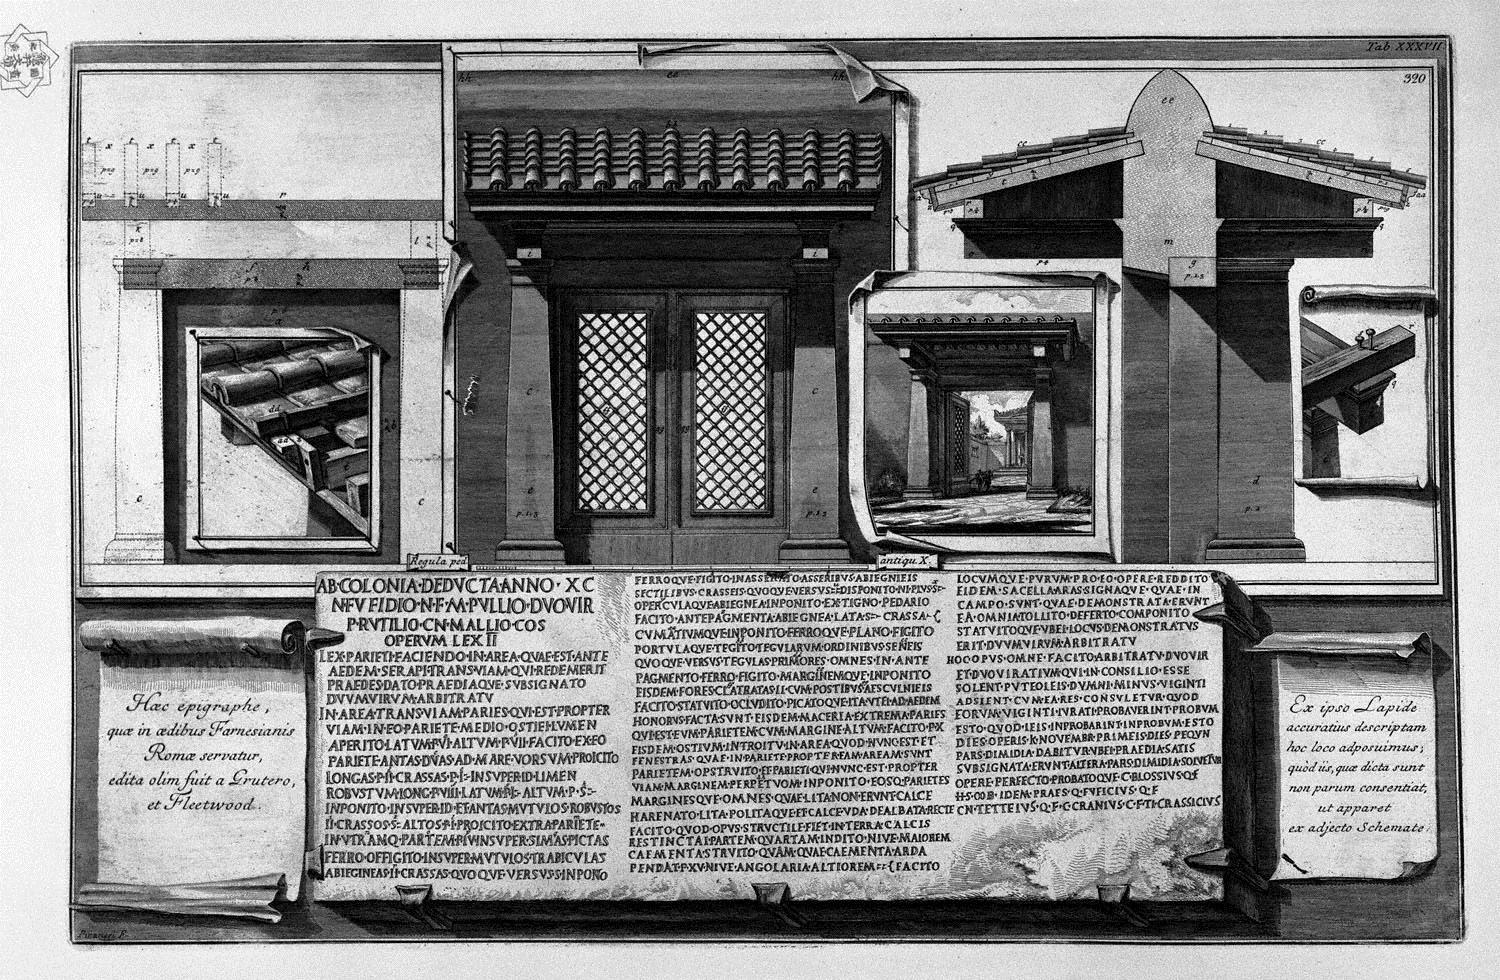 Tab. XXXVII
320
Regula ped
antiqu. X.
AB·COLONIA·DEDVCTA·ANNO·XC
NFVFIDIO·N·F·M·PVLLIO·DVOVIR
P·RVTILIO·CN·MALLIO·COS
OPERVM LEX II
LEX·PARIETI·FACIENDO·IN·AREA·QVAE·EST·ANTE
AEDEM·SERAPI·TRANS·VIAM·QVI·REDEMERIT
PRAEDES·DATO·PRAEDIAQVE·SVBSIGNATO
DVVMVIRVM·ARBITRATV
IN·AREA·TRANS·VIAM·PARIES·QVI·EST·PROPTER
VIAM·IN·EO·PARIETE·MEDIO·OSTIEI·LVMEN
APERITO·LATVM·P·VI·ALTVM·P·VII·FACITO·EX·EO
PARIETE·ANTAS·DVAS·AD·MARE·VORSVM·PROICITO
LONGAS·P·II·CRASSAS·P·I·INSVPER·ID·LIMEN
ROBVSTVM·LONG·P·VIII·LATVM·P·I·ALTVM·P·S
INPONITO·INSVPER·ID·ET·ANTAS·MVTVLOS·ROBVSTOS
II·CRASSOS·S·ALTOS·P·I·PROICITO·EXTRA·PARIETE
IN·VTRAMQ·PARTEM·P·IV·INSVPER·SIMAS·PICTAS
FERRO·OFFIGITO·INSVPER·MVTVLOS·TRABICVLAS
ABIEGINEAS·II·CRASSAS·QVOQVE·VERSVS·S·INPONO
FERROQVE·FIGITO·INASSERATO·ASSERIBVS·ABIEGNIEIS
SECTILIBVS·CRASSEIS·QVOQVE·VERSVS·DISPONITO·NI·PLVS·S
OPERCVLAQVE·ABIEGNEA·INPONITO·EX·TIGNO·PEDARIO
FACITO·ANTEPAGMENTA·ABIEGNEA·LATA·S·CRASSA
CVMATIVMQVE·INPONITO·FERROQVE·PLANO·FIGITO
PORTVLAQVE·TEGITO·TEGVLARVM·ORDINIBVS·SENEIS
QVOQVE·VERSVS·TEGVLAS·PRIMORES·OMNES·IN·ANTE
PAGMENTO·FERRO·FIGITO·MARGINEMQVE·INPONITO
EISDEM·FORES·CLATRATAS·II·CVM·POSTIBVS·AESCVLNIEIS
FACITO·STATVITO·OCLVDITO·PICATOQVE·ITA·VTEI·AD·AEDEM
HONORVS·FACTA·SVNT·EISDEM·MACERIA·EXTREMA·PARIES
QVI·EST·EVM·PARIETEM·CVM·MARGINE·ALTVM·FACITO·P·X
EISDEM·OSTIVM·INTROITV·IN·AREA·QVOD·NVNC·EST·ET
FENESTRAS·QVAE·IN·PARIETE·PROPTER·EAM·AREAM·SVNT
PARIETEM·OPSTRVITO·ET·PARIETI·QVI·NVNC·EST·PROPTER
VIAM·MARGINEM·PERPETVOM·INPONITO·EOSQ·PARIETES
MARGINESQVE·OMNES·QVAE·LITA·NON·ERVNT·CALCE
HARENATO·LITA·POLITAQVE·ET·CALCE·VDA·DEALBATA·RECTE
FACITO·QVOD·OPVS·STRVCTILE·FIET·IN·TERRA·CALCIS
RESTINCTAI·PARTEM·QVARTAM·INDITO·NIVE·MAIOREM
CAEMENTA·STRVITO·QVAM·QVAE·CAEMENTA·ARDA
PENDAT·P·XV·NIVE·ANGOLARIA·ALTIOREM FACITO
LOCVMQVE·PVRVM·PRO·EO·OPERE·REDDITO
EIDEM·SACELLA·ARAS·SIGNAQVE·QVAE·IN
CAMPO·SVNT·QVAE·DEMONSTRATA·ERVNT
EA·OMNIA·TOLLITO·DEFERTO·COMPONITO
STATVITOQVE·VBEI·LOCVS·DEMONSTRATVS
ERIT·DVVMVIRVM·ARBITRATV
HOC·OPVS·OMNE·FACITO·ARBITRATV·DVOVIR
ET·DVOVIRATIVM·QVI·IN·CONSILIO·ESSE
SOLENT·PVTEOLEIS·DVM·NI·MINVS·VIGINTI
ADSIENT·CVM·EA·RES·CONSVLETVR·QVOD
EORVM·VIGINTI·IVRATI·PROBAVERINT·PROBVM
ESTO·QVOD·IEIS·INPROBARINT·INPROBVM·ESTO
DIES·OPERIS·K·NOVEMBR·PRIMEIS·DIES·PEQVN
PARS·DIMIDIA·DABITVR·VBEI·PRAEDIA·SATIS
SVBSIGNATA·ERVNT·ALTERA·PARS·DIMIDIA·SOLVETVR
OPERE·PERFECTO·PROBATOQVE·C·BLOSSIVS·Q·F
IDEM·PRAES·Q·FVFICIVS·Q·F
CN·TETTEIVS·Q·F·C·GRANIVS·C·F·TI·CRASSICIVS
Hæc epigraphe,
quæ in ædibus Farnesianis
Romæ servatur,
edita olim fuit a Grutero,
et Fleetwood.
Ex ipso Lapide
accuratius descriptam
hoc loco adposuimus;
quòd iis, quæ dicta sunt
non parum consentiat,
ut apparet
ex adjecto Schemate.
Piranesi F.